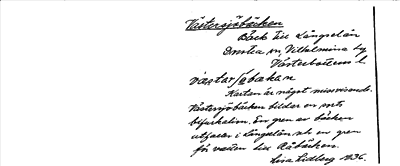 Västersjöbäcken
Bäck till Långselån
Dorotea sn, Vilhelmina
Västerbottens l.
Kartan är något missvisande.
Västersjöbäcken bildar en sorts
bifurkation. En gren av bäcken
utfaller i Långselån och en gren
för vatten till Råbäcken.
Lidberg 1936.